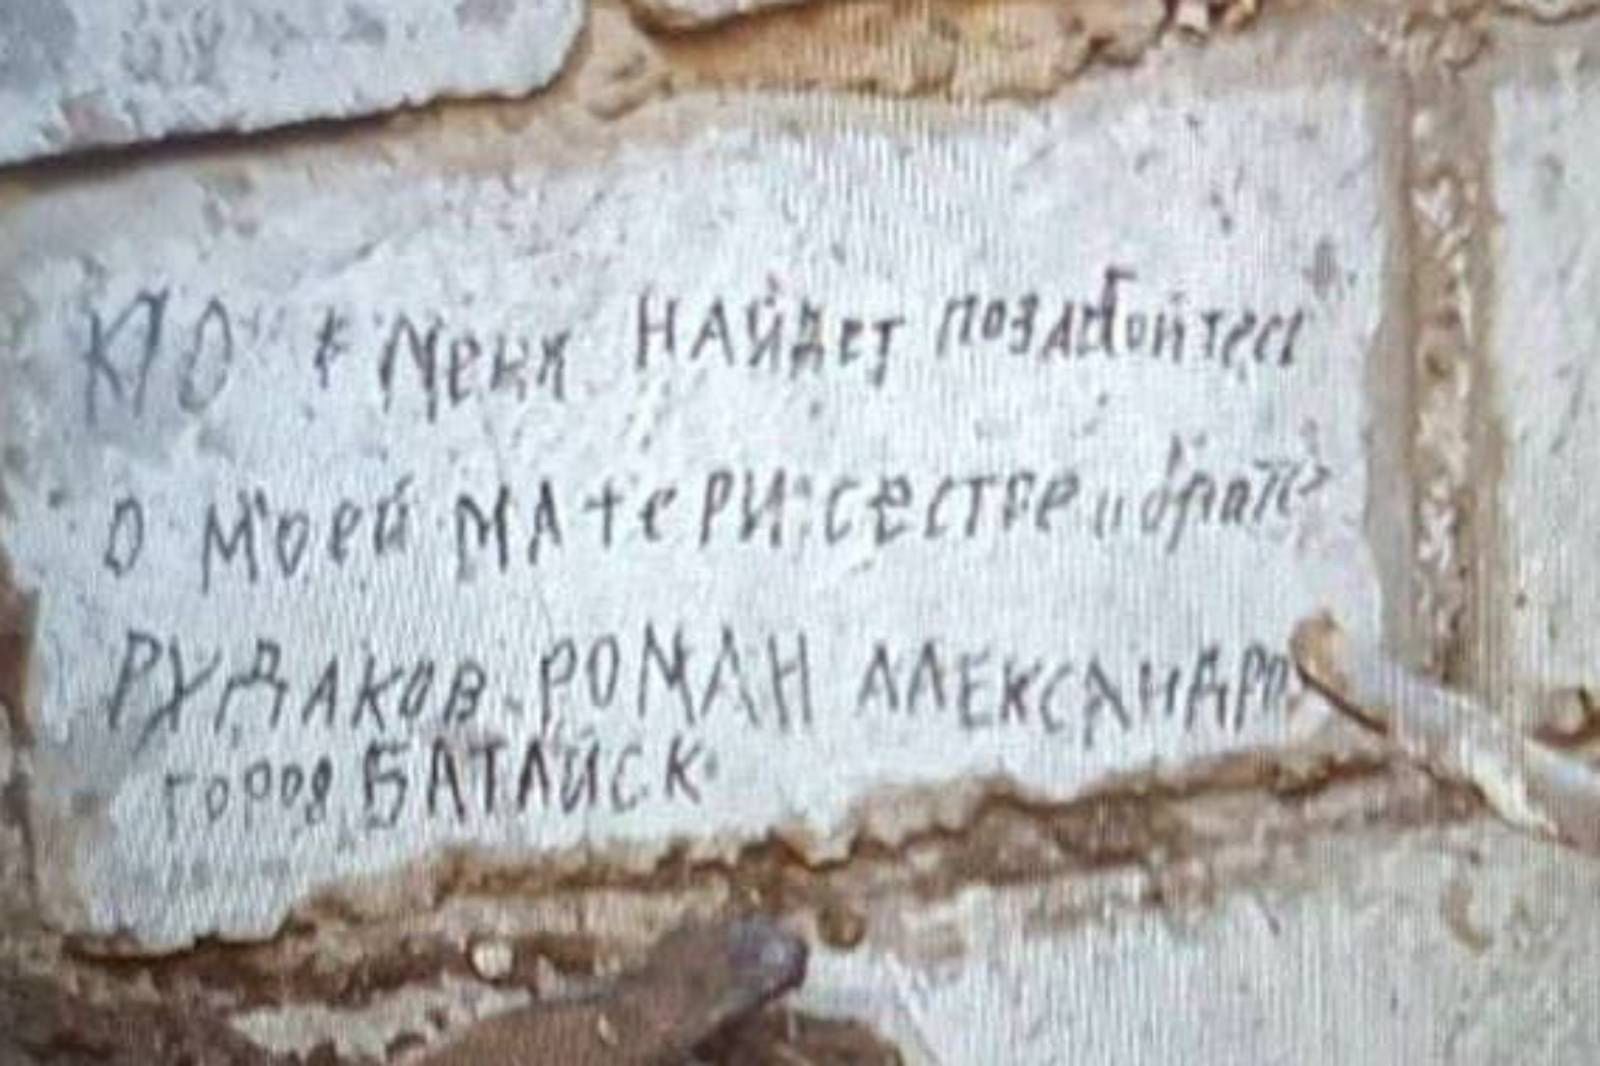 КТО меня НАЙДЕТ позаботтесь
о моей МАтеРИ сестре и брате
РУДАКОВ РОМАН АЛЕКСАНДРОВ
город БАТАЙСК